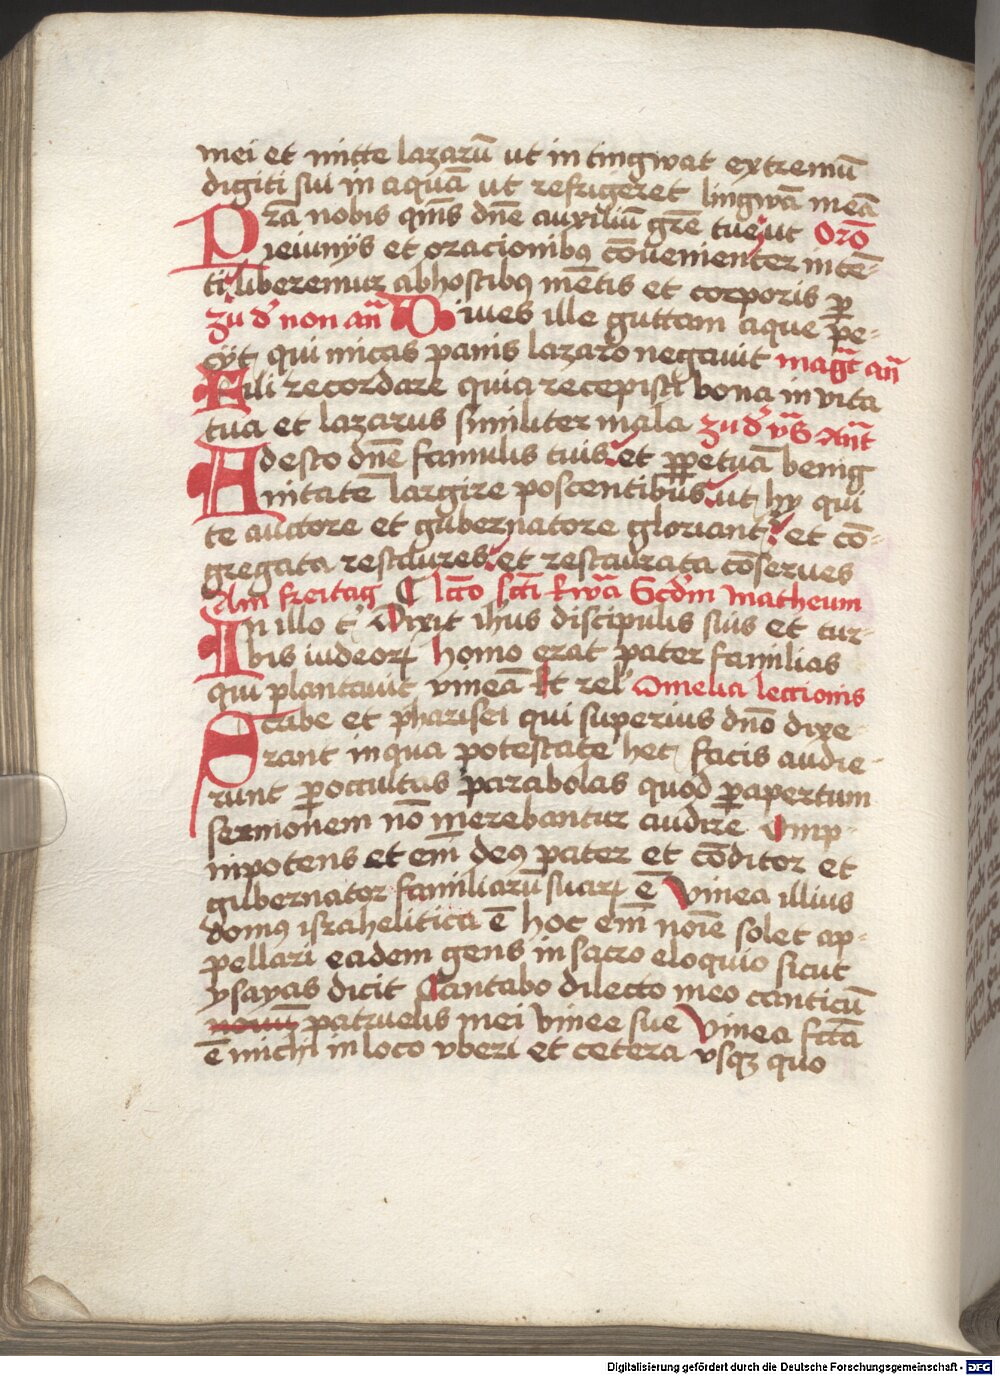 mei et mitte lazarū ut in tingwat extremū
digiti sui in aquā ut refrigeret lingwā meā
Prā nobis qm̄s dn̄e auxiliū grē tue ut Orō
ieiunijs et oracionibꝯ cōvenienter intē-
ti liberemur ab hostibꝯ mētis et corporis ꝑ
zu dʼ non an̄ Dives ille guttam aque pe-
cyt qui micas panis lazaro negavit magt̄ an̄
Fili recordare quia recepisti bona in vita
tua et lazarus similiter mala zu dʼ vs̄ Ant̄
Adesto dn̄e famulis tuis et ꝑpetuā benig
nitatē largire poscentibus ut hy qui
te auctore et gubernatore gloriantʼ et cō-
gregata restaures et restaurata cōserves
Am freitag lcc̄o sct̄i ewā Scd̄m matheum
In illo tʼ Dixit ihūs discipulis suis et tur-
bis iudeoꝝ homo erat pater familias
qui plantavit vineā Et relʼ Omelia lectionis
Scribe et pharisei qui superius dn̄o dixe-
rant in qua potestate hec facis audie-
runt ꝑ occultas parabolas quod ꝑ apertum
sermonem nō merebantur audire Omp-
nipotens et em̄ deꝯ pater et cōditor et
gubernator familiarū suaꝝ ē Vinea illius
domꝯ israhelitica ē hoc em̄ noīe solet ap-
pellari eadem gens in sacro eloquio sicut
ysayas dicit Cantabo dilecto meo canticū
novū patruelis mei vinee sue Vinea fct̄a
ē michi in loco vberi et cetera vsqꝫ quo
Digitalisierung gefördert durch die Deutsche Forschungsgemeinschaft - DFG